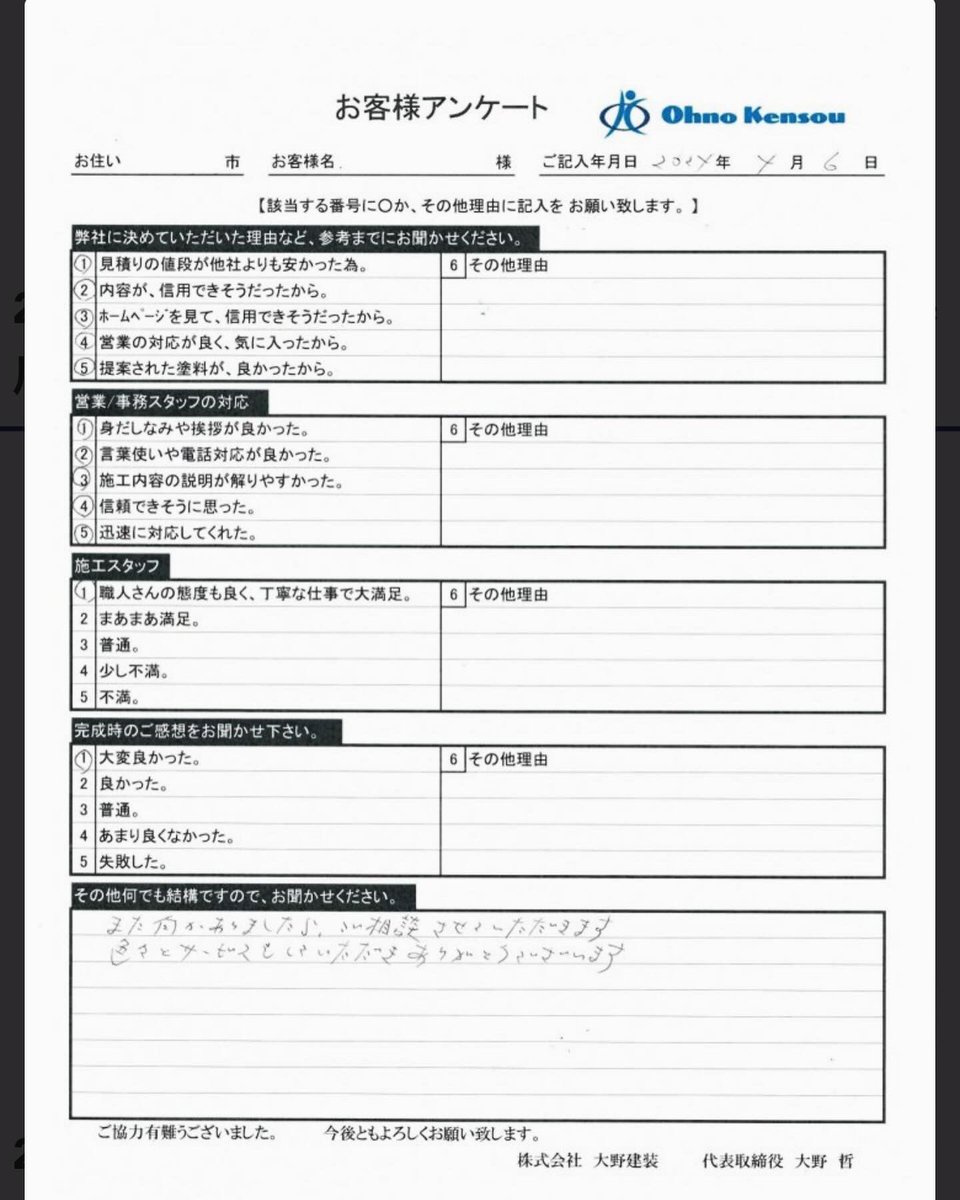 お客様アンケート
Ohno Kensou
お住い 市 お客様名. 様 ご記入年月日 2024年 4月6日
【該当する番号に〇か、その他理由に記入を お願い致します。】
弊社に決めていただいた理由など、参考までにお聞かせください。
1 見積りの値段が他社よりも安かった為。
2 内容が、信用できそうだったから。
3 ホームページを見て、信用できそうだったから。
4 営業の対応が良く、気に入ったから。
5 提案された塗料が、良かったから。
6 その他理由
営業/事務スタッフの対応
1 身だしなみや挨拶が良かった。
2 言葉使いや電話対応が良かった。
3 施工内容の説明が解りやすかった。
4 信頼できそうに思った。
5 迅速に対応してくれた。
6 その他理由
施工スタッフ
1 職人さんの態度も良く、丁寧な仕事で大満足。
2 まあまあ満足。
3 普通。
4 少し不満。
5 不満。
6 その他理由
完成時のご感想をお聞かせ下さい。
1 大変良かった。
2 良かった。
3 普通。
4 あまり良くなかった。
5 失敗した。
6 その他理由
その他何でも結構ですので、お聞かせください。
また何かありましたら、ご相談させていただきます
色々とサービスもしていただきありがとうございます
ご協力有難うございました。 今後ともよろしくお願い致します。
株式会社 大野建装 代表取締役 大野 哲